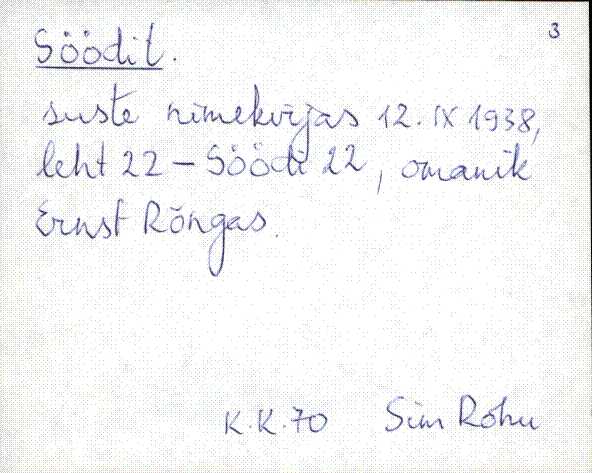 3
Söödit.
suste nimekirjas 12. IX 1938,
leht 22 – Söödi 22, omanik
Ernst Rõngas.
K.K.70 Sim Rõhu